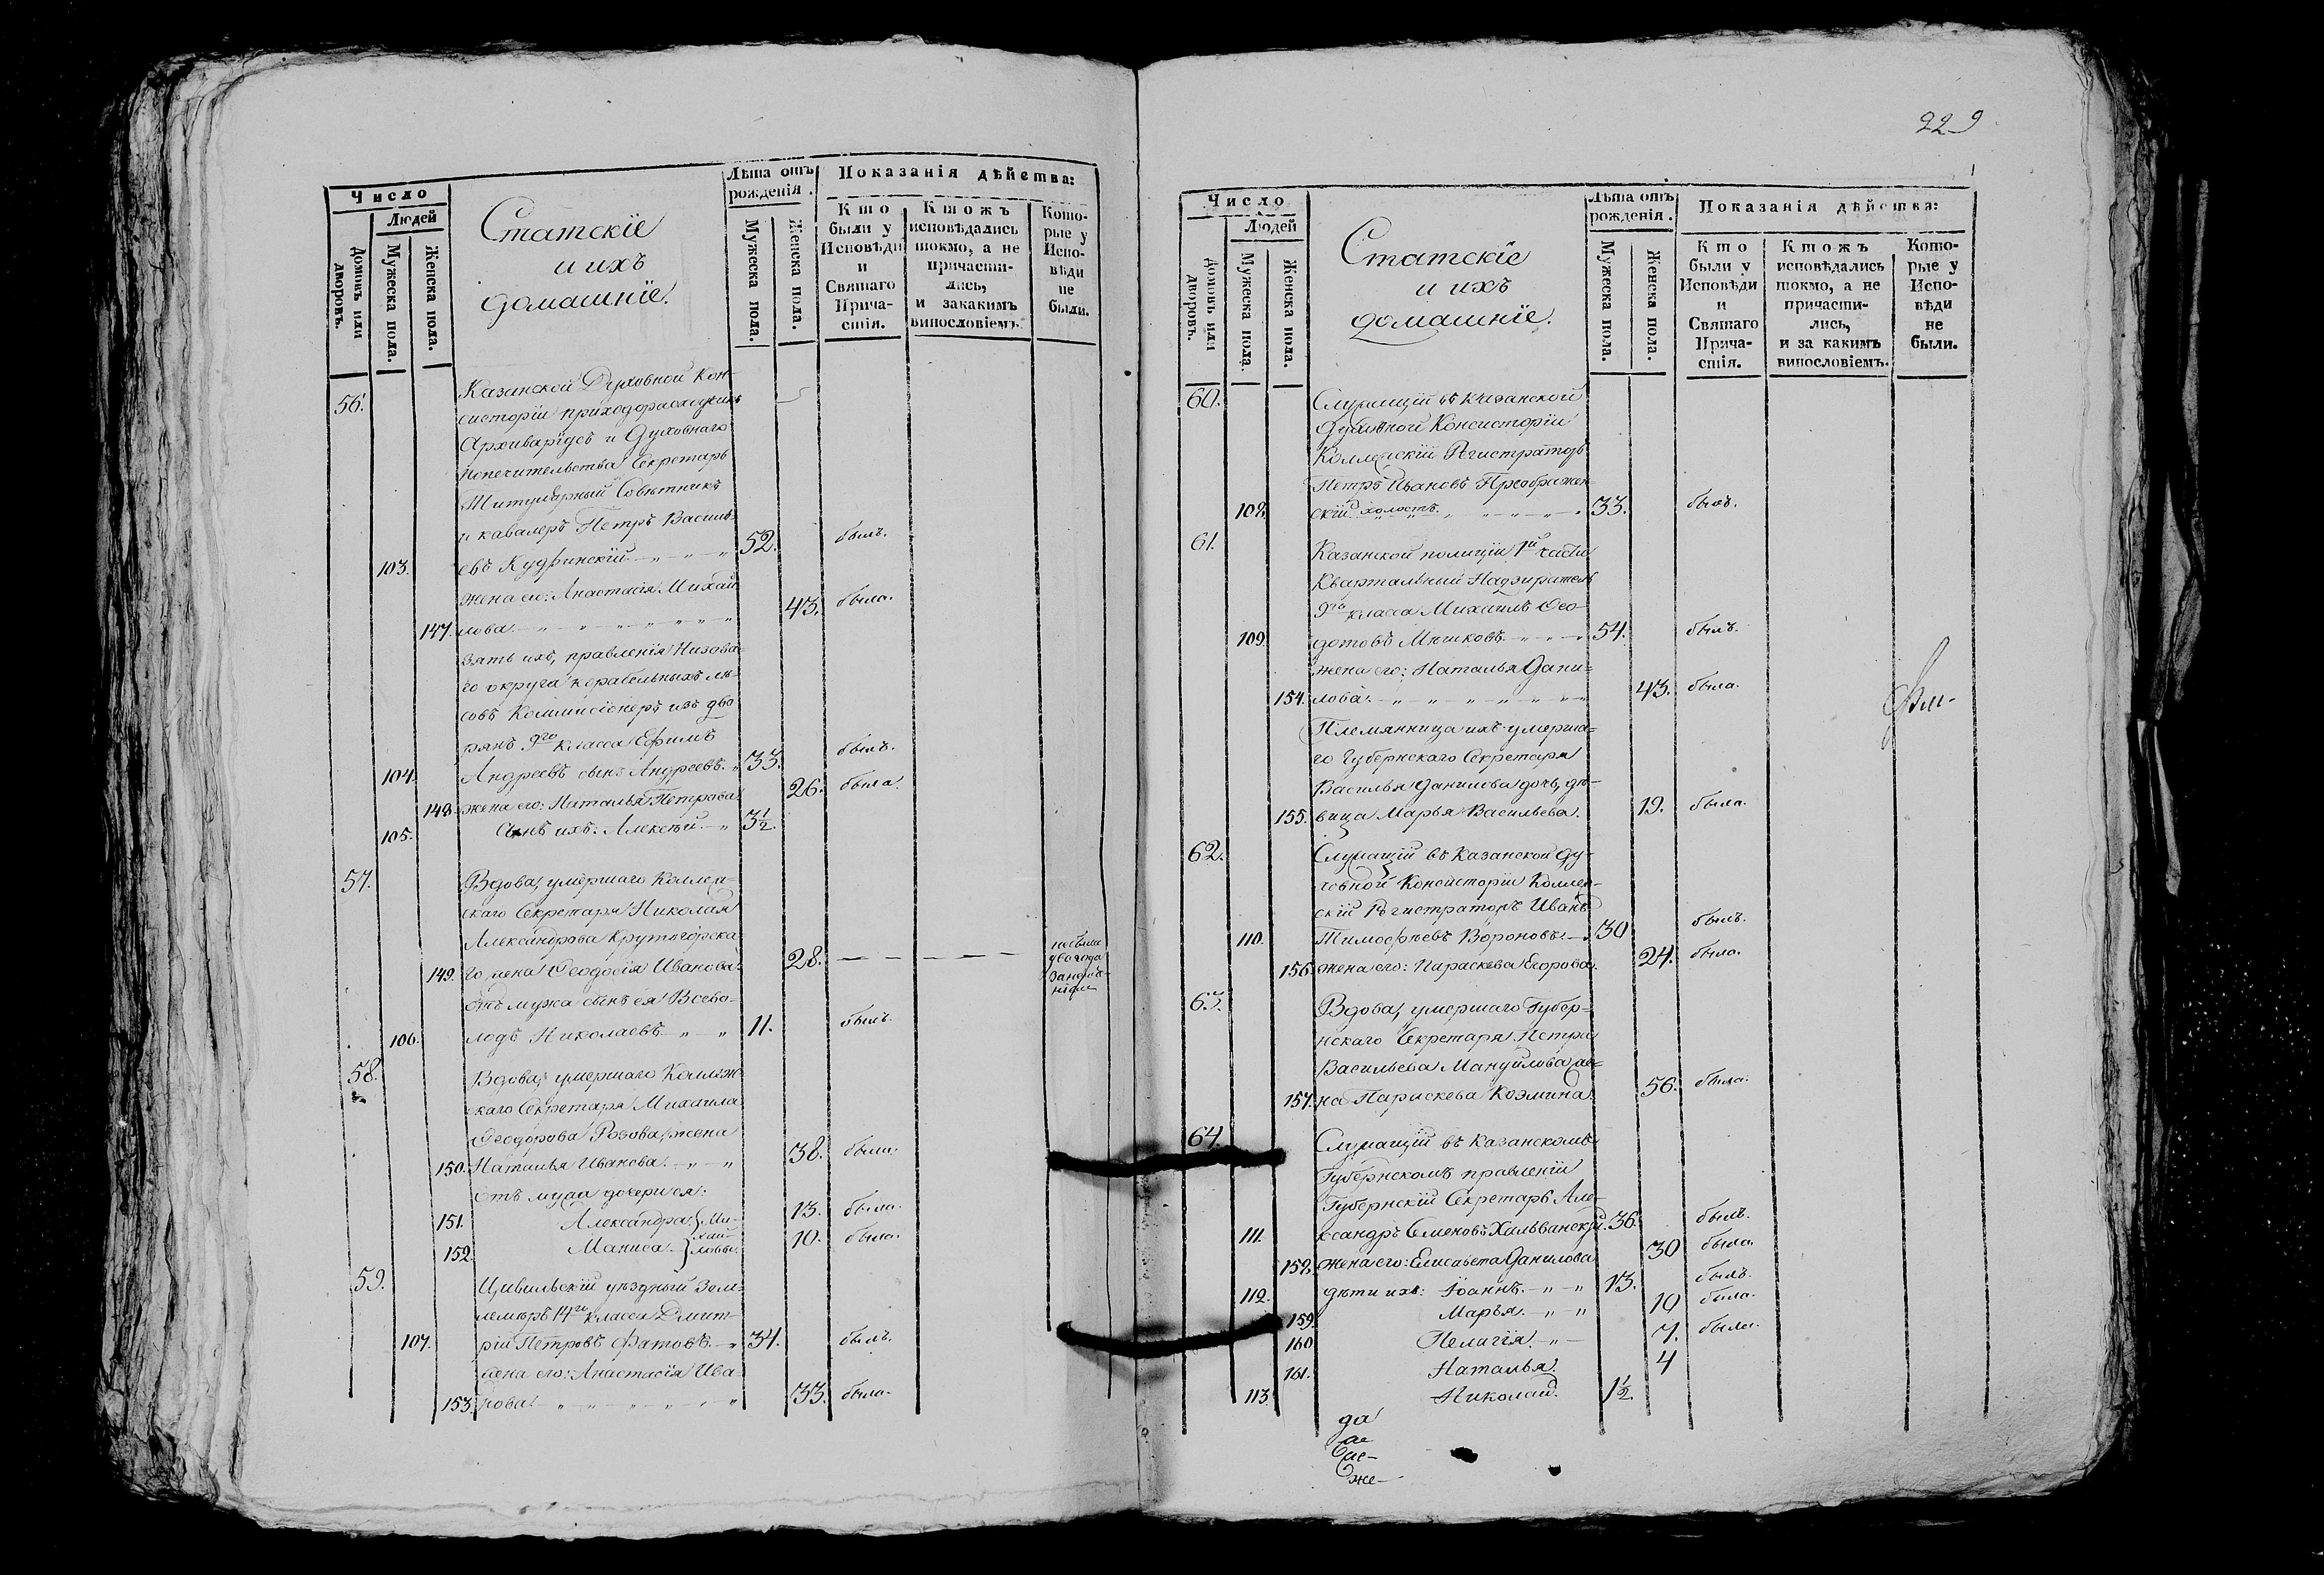 Число
Людей
Домовъ или дворовъ.
Мужеска пола.
Женска пола.
Статскіе
и ихъ
домашніе.
Лѣта отъ рожденія.
Мужеска пола.
Женска пола.
Показанія дѣйства:
Кто были у Исповѣди и Святаго Причастія.
Ктожъ исповѣдались токмо, а не причастились, и закакимъ винословіемъ.
Которые у Исповѣди не были.
56. Казанской Духовной Кон-
систоріи приходорасходчикъ
Архиваріусъ и Духовнаго
попечительства Секретарь
Титулярный Совѣтникъ
и кавалеръ Петръ Василь-
103. евъ Кудринскій 52. былъ.
жена его: Анастасія Михай-
147. лова 43. была.
Зять ихъ, правленія Низова-
го округа корабельныхъ лѣ-
совъ Коммисіонеръ изъ дво
рянъ 9го класса Ефимъ
104. Андреевъ сынъ Андреевъ 33. былъ.
148. жена его: Наталья Петрова 26. была.
105. Сынъ ихъ: Алексѣй 3½.
57. Вдова, умершаго Коллеж-
скаго Секретаря Николая
Александрова Крутогорска-
149. го жена Ѳеодосія Иванова 28.
Отъ мужа сынъ ея Всево-
106. лодъ Николаевъ 11. былъ.
58. Вдова, умершаго Коллеж-
скаго Секретаря Михаила
Ѳеодорова Розова жена
150. Наталья Иванова 38. была.
Отъ мужа дочери ея:
151. Александра Ми- 13. была.
152. хай-ловы. 10. была.
59. Цивильскій уѣздный Зем-
лемѣръ 14го класса Дмит-
107. рій Петровъ Фатовъ 34. былъ.
жена его: Анастасія Ива-
153. нова 33. была.
229
Число
Людей
Домовъ или дворовъ.
Мужеска пола.
Женска пола.
Статскіе
и ихъ
домашніе.
Лѣта отъ рожденія.
Мужеска пола.
Женска пола.
Показанія дѣйства:
Кто были у Исповѣди и Святаго Причастія.
Ктожъ исповѣдались токмо, а не причастились, и за какимъ винословіемъ.
Которые у Исповѣди не были.
60. Служащій въ Казанской
Духовной Консисторіи
Коллежскій Регистраторъ
Петръ Ивановъ Преображен-
108. скій холостъ 33. былъ.
61. Казанской полиціи 1й части
Квартальный Надзиратель
9го класса Михаилъ Ѳео-
109. дотовъ 54. былъ.
жена его: Наталья Дани-
154. лова 43. была.
Племянница ихъ умерша-
го Губернскаго Секретаря
Василья Данилова дочь, дѣ-
155. вица Марья Васильева. 19. была.
62. Служащій въ Казанской Ду-
ховной Консисторіи Коллеж-
скій Регистраторъ Иванъ
110. Тимоѳѣевъ Вороновъ 30 былъ.
156. жена его: Параскева Егорова. 24. была.
63. Вдова, умершаго Губер-
нскаго Секретаря Петра
Васильева Мануйлова же-
157. на Параскева Козмина 56. была.
64. Служащій въ Казанскомъ
Губернскомъ правленіи
Губернскій Секретарь Але-
111. ксандръ Семеновъ Хальванскій. 36. былъ.
158. жена его: Елисавета Данилова 30 была.
112. дѣти ихъ: Іоаннъ 13. былъ.
159. Марья 10 была.
160 Пелагія 7. была.
161. Наталья. 4
113. Николай. 1½.